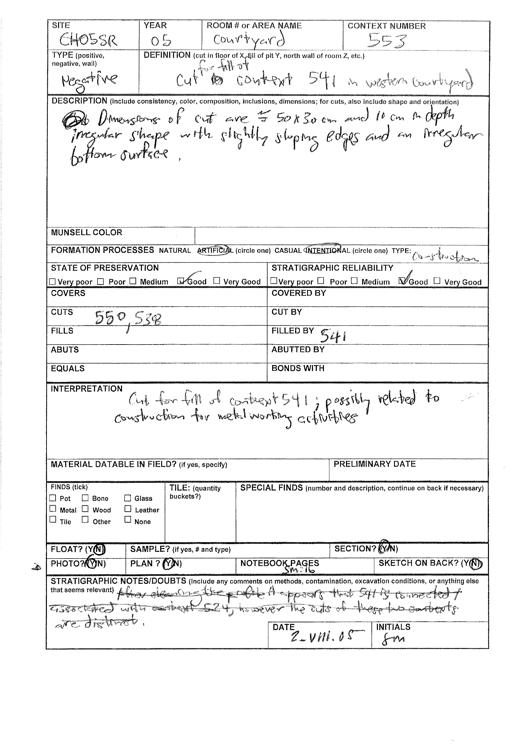 SITE YEAR ROOM # or AREA NAME CONTEXT NUMBER
CH05SR 05 Courtyard 553
TYPE (positive, negative, wall) DEFINITION (cut in floor of X, fill of pit Y, north wall of room Z, etc.)
Negative Cut for fill of context 541 in western courtyard
DESCRIPTION (Include consistency, color, composition, inclusions, dimensions; for cuts, also include shape and orientation)
Dimensions of cut are ≈ 50 x 30 cm and 10 cm in depth
irregular shape with slightly sloping edges and an irregular
bottom surface.
MUNSELL COLOR
FORMATION PROCESSES NATURAL ARTIFICIAL (circle one) CASUAL INTENTIONAL (circle one) TYPE: Construction
STATE OF PRESERVATION STRATIGRAPHIC RELIABILITY
☐ Very poor ☐ Poor ☐ Medium ☑ Good ☐ Very Good ☐ Very poor ☐ Poor ☐ Medium ☑ Good ☐ Very Good
COVERS COVERED BY
CUTS 550, 538 CUT BY
FILLS FILLED BY 541
ABUTS ABUTTED BY
EQUALS BONDS WITH
INTERPRETATION
Cut for fill of context 541; possibly related to
construction for metal working activities
MATERIAL DATABLE IN FIELD? (if yes, specify) PRELIMINARY DATE
FINDS (tick) TILE: (quantity buckets?) SPECIAL FINDS (number and description, continue on back if necessary)
☐ Pot ☐ Bone ☐ Glass
☐ Metal ☐ Wood ☐ Leather
☐ Tile ☐ Other ☐ None
FLOAT? (Y/N) SAMPLE? (if yes, # and type) SECTION? (Y/N)
PHOTO? (Y/N) PLAN ? (Y/N) NOTEBOOK PAGES SM:16 SKETCH ON BACK? (Y/N)
STRATIGRAPHIC NOTES/DOUBTS (Include any comments on methods, contamination, excavation conditions, or anything else
that seems relevant) After cleaning the profile it appears that 541 is connected /
associated with context 524, however the cuts of these two contexts
are distinct.
DATE INITIALS
2-VIII.05 SM